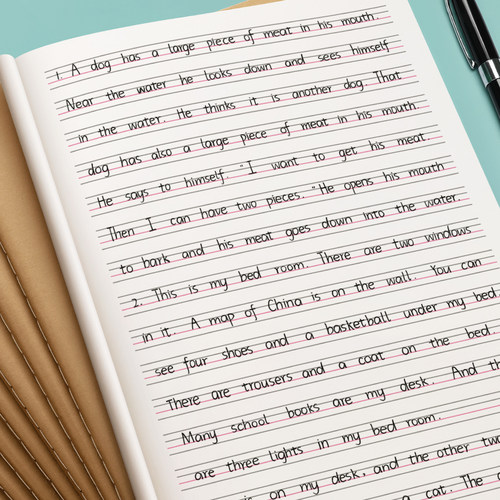 1. A dog has a large piece of meat in his mouth.
Near the water he looks down and sees himself
in the water. He thinks it is another dog. That
dog has also a large piece of meat in his mouth
He says to himself. "I want to get his meat.
Then I can have two pieces." He opens his mouth
to bark and his meat goes down into the water.
2. This is my bed room. There are two windows
in it. A map of China is on the wall. You can
see four shoes and a basketball under my bed.
There are trousers and a coat on the bed
Many school books are my desk. And th
are three lights in my bed room.
on my desk, and the other two
cat. The